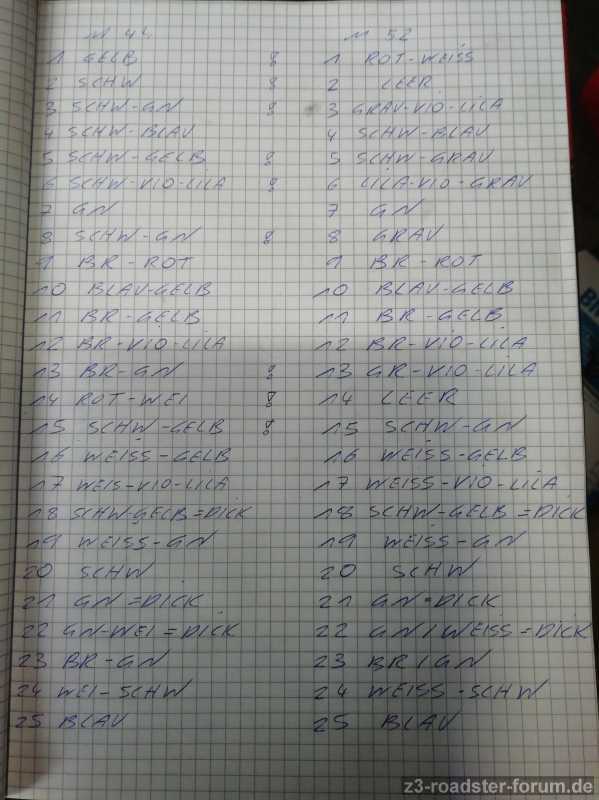 M 44 M 52
1 GELB 8 1 ROT-WEISS
2 SCHW 8 2 LEER
3 SCHW-GN 8 3 GRAV-VIO-LILA
4 SCHW-BLAV 4 SCHW-BLAV
5 SCHW-GELB 8 5 SCHW-GRAV
6 SCHW-VIO-LILA 8 6 LILA-VIO-GRAV
7 GN 7 GN
8 SCHW-GN 8 8 GRAV
9 BR-ROT 9 BR-ROT
10 BLAV-GELB 10 BLAV-GELB
11 BR-GELB 11 BR-GELB
12 BR-VIO-LILA 12 BR-VIO-LILA
13 BR-GN 8 13 GR-VIO-LILA
14 ROT-WEI 8 14 LEER
15 SCHW-GELB 8 15 SCHW-GN
16 WEISS-GELB 16 WEISS-GELB
17 WEIS-VIO-LILA 17 WEISS-VIO-LILA
18 SCHW-GELB=DICK 18 SCHW-GELB=DICK
19 WEISS-GN 19 WEISS-GN
20 SCHW 20 SCHW
21 GN=DICK 21 GN=DICK
22 GN-WEI=DICK 22 GN/WEISS=DICK
23 BR-GN 23 BR/GN
24 WEI-SCHW 24 WEISS-SCHW
25 BLAV 25 BLAV
z3-roadster-forum.de